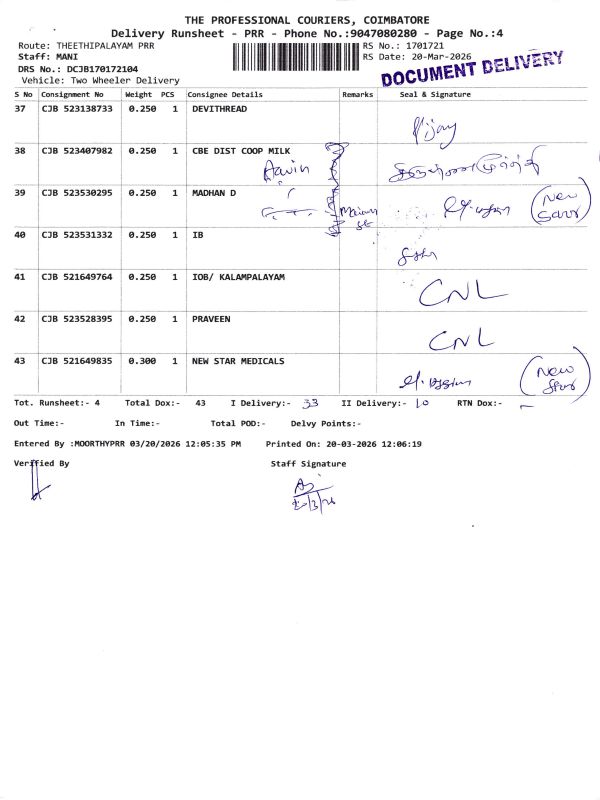 THE PROFESSIONAL COURIERS, COIMBATORE
Delivery Runsheet - PRR - Phone No.:9047080280 - Page No.:4
Route: THEETHIPALAYAM PRR RS No.: 1701721
Staff: MANI RS Date: 20-Mar-2026
DRS No.: DCJB170172104
Vehicle: Two Wheeler Delivery
DOCUMENT DELIVERY
S No Consignment No Weight PCS Consignee Details Remarks Seal & Signature
37 CJB 523138733 0.250 1 DEVITHREAD
Vijay
38 CJB 523407982 0.250 1 CBE DIST COOP MILK
Aavin
39 CJB 523530295 0.250 1 MADHAN D
New
40 CJB 523531332 0.250 1 IB
41 CJB 521649764 0.250 1 IOB/ KALAMPALAYAM
CNL
42 CJB 523528395 0.250 1 PRAVEEN
CNL
43 CJB 521649835 0.300 1 NEW STAR MEDICALS
New
Tot. Runsheet:- 4 Total Dox:- 43 I Delivery:- 33 II Delivery:- 10 RTN Dox:- –
Out Time:- In Time:- Total POD:- Delvy Points:-
Entered By :MOORTHYPRR 03/20/2026 12:05:35 PM Printed On: 20-03-2026 12:06:19
Verified By Staff Signature
20/3/26